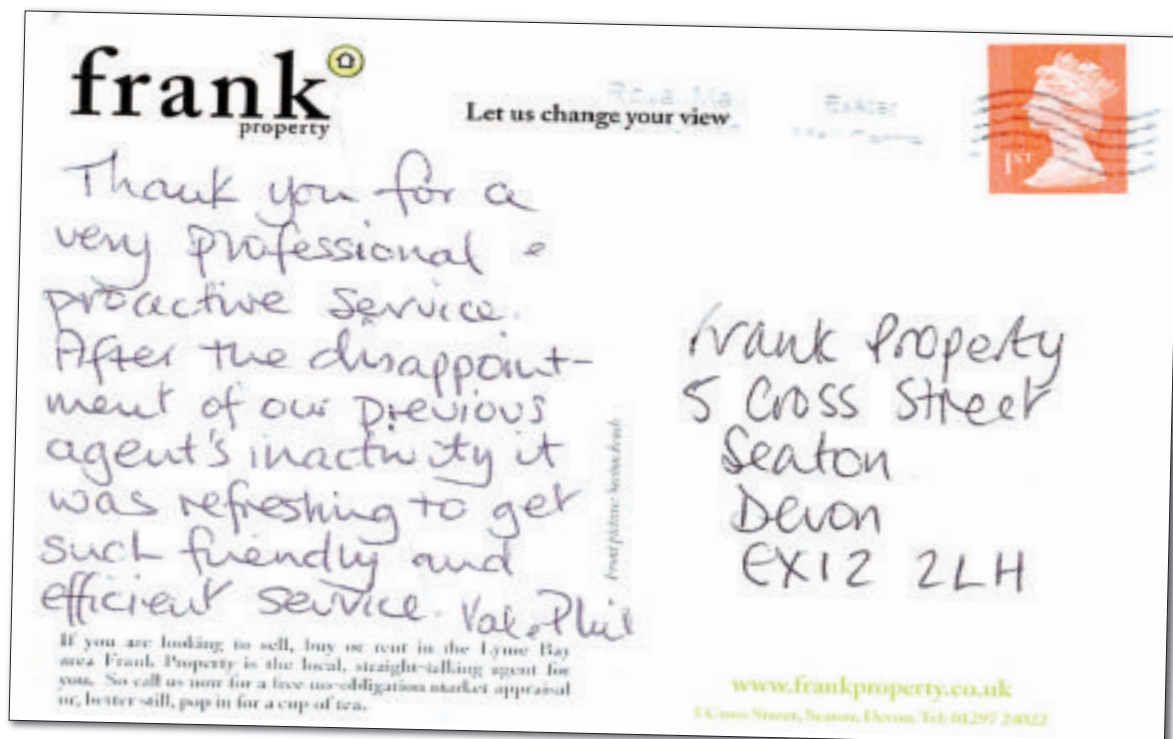 frank
property
Let us change your view
Royal Mail
Exeter
Mail Centre
1ST
Thank you for a
very professional e
proactive service.
After the disappoint-
ment of our previous
agent's inactivity it
was refreshing to get
such friendly and
efficient service. Val e Phil
Frank Property
5 Cross Street
Seaton
Devon
EX12 2LH
Front picture: Seaton
If you are looking to sell, buy or rent in the Lyme Bay
area Frank Property is the local, straight-talking agent for
you. So call us now for a free no-obligation market appraisal
or, better still, pop in for a cup of tea.
www.frankproperty.co.uk
5 Cross Street, Seaton, Devon Tel: 01297 24022